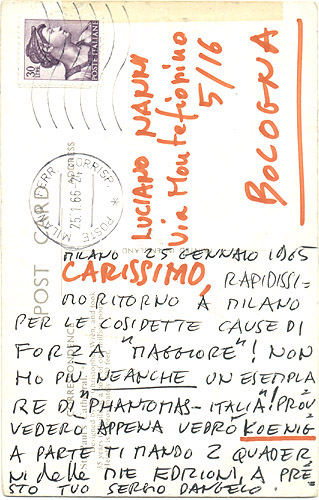 30
LIRE
POSTE ITALIANE
LUCIANO NANNI
Via Montefiorino
5/16
BOLOGNA
MILANO
CORRISP.
25.1.66-24
* POSTE
POST CARD
CORRESPONDENCE
MILANO 25 GENNAIO 1965
CARISSIMO, RAPIDISSI-
MO RITORNO A MILANO
PER LE COSIDETTE CAUSE DI
FORZA "MAGGIORE"! NON
HO PIÙ NEANCHE UN ESEMPLA
RE DI "PHANTOMAS-ITALIA"! PROV
VEDERÒ APPENA VEDRÒ KOENIG
A PARTE TI MANDO 2 QUADER
NI delle MIE EDIZIONI, A PRE
STO TUO SERGIO DANGELO.